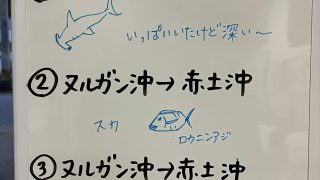 いっぱいいたけど深い～
②ヌルガン沖→赤土沖
スカ
ロウニンアジ
③ヌルガン沖→赤土沖